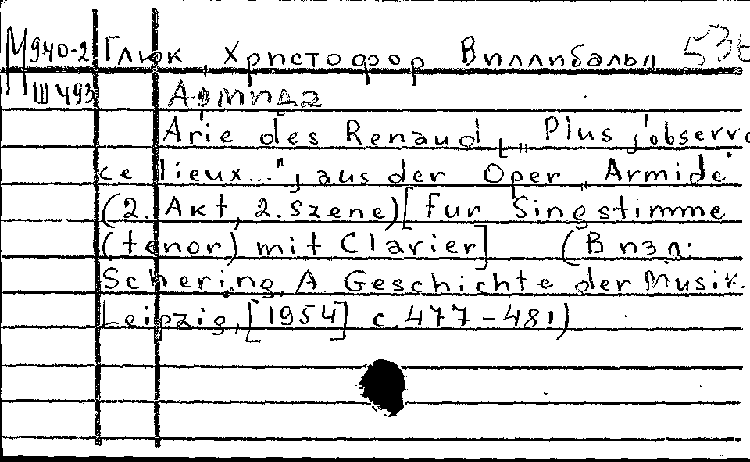 М940-2 Глюк, Христофор Виллибальд 536
Ш493 Армида
Arie des Renaud, „Plus j'observe
ce lieux...", aus der Oper „Armide"
(2. Akt, 2. Szene) [fur Singstimme
(tenor) mit Clavier] (В изд:
Schering, A. Geschichte der Musik.
Leipzig, [1954] с. 477-481)